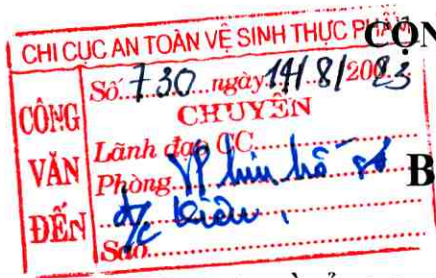 CHI CỤC AN TOÀN VỆ SINH THỰC PHẨM
CỘN
CÔNG VĂN ĐẾN
Số 730 ngày 14/8/2023
CHUYỂN
Lãnh đạo CC
Phòng VP lưu hồ sơ
B
đ/c
Sao